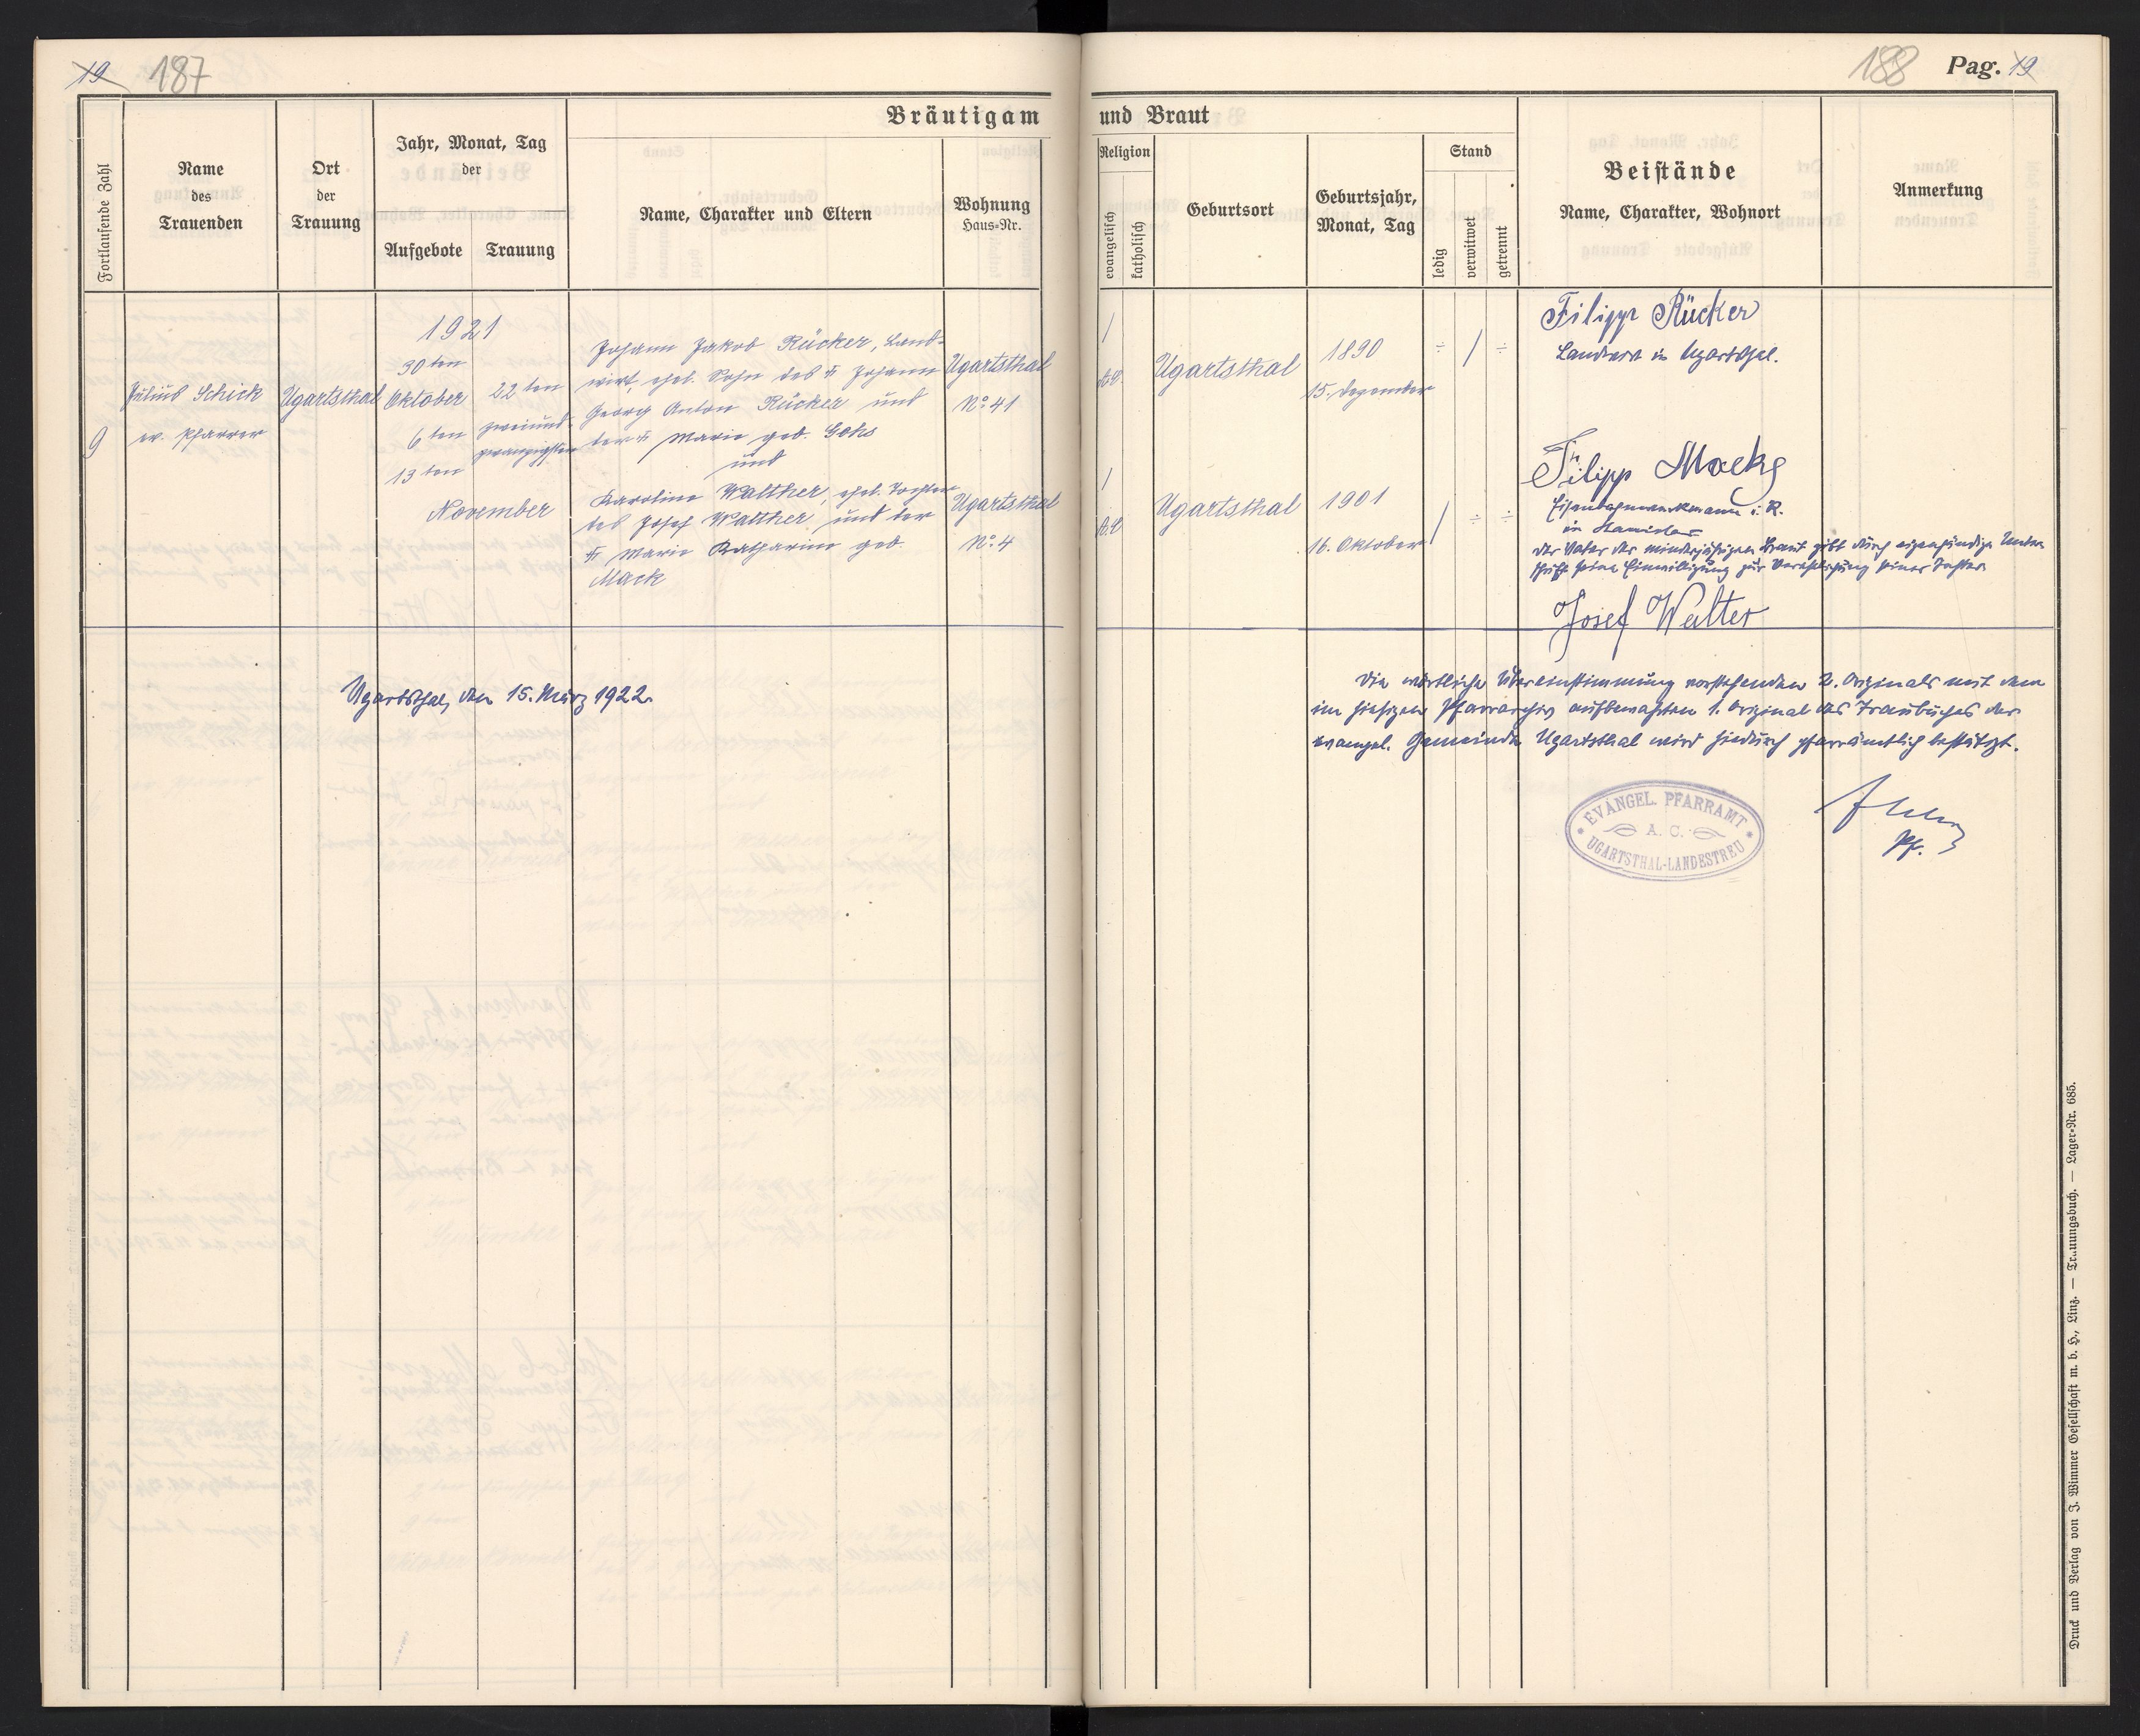 19 187
Bräutigam
Fortlaufende Zahl
Name
des
Trauenden
Ort
der
Trauung
Jahr, Monat, Tag
der
Aufgebote
Trauung
Name, Charakter und Eltern
Wohnung
Haus-Nr.
9
Julius Schick
ev. Pfarrer
Ugartsthal
1921
30ten
Oktober
6ten
13ten
November
22ten
zweiund-
zwanzigsten
Johann Jakob Rücker, Land-
wirt, ehel. Sohn des † Johann
Georg Anton Rücker und
der † Marie geb. Gohs
und
Karoline Walther, ehel. Tochter
des Josef Walther und der
† Marie Katharine geb.
Mack
Ugartsthal
No 41
Ugartsthal
No 4
Ugartsthal, den 15. März 1922.
188 Pag. 19
und Braut
Religion
evangelisch
katholisch
Geburtsort
Geburtsjahr,
Monat, Tag
Stand
ledig
verwitwet
getrennt
Beistände
Name, Charakter, Wohnort
Anmerkung
/
A.C.
Ugartsthal
1890
15. Dezember
÷ / ÷
Filipp Rücker
Landwirt in Ugartsthal.
/
A.C.
Ugartsthal
1901
16. Oktober
/ ÷ ÷
Filipp Macks
i. R.
in Stanislau
Der Vater der minderjährigen Braut gibt durch eigenhändige Unter-
schrift seine Einwilligung zur Verehelichung seiner Tochter
Josef Walter
Die wörtliche Übereinstimmung vorstehenden 2. Originals mit dem
im hiesigen Pfarrarchiv aufbewahrten 1. Original des Traubuches der
evangel. Gemeinde Ugartsthal wird hiedurch pfarrämtlich bestätigt.
EVANGEL. PFARRAMT
A. C.
UGARTSTHAL-LANDESTREU
Pf.
Druck und Verlag von J. Wimmer Gesellschaft m. b. H., Linz. — Trauungsbuch. — Lager-Nr. 685.